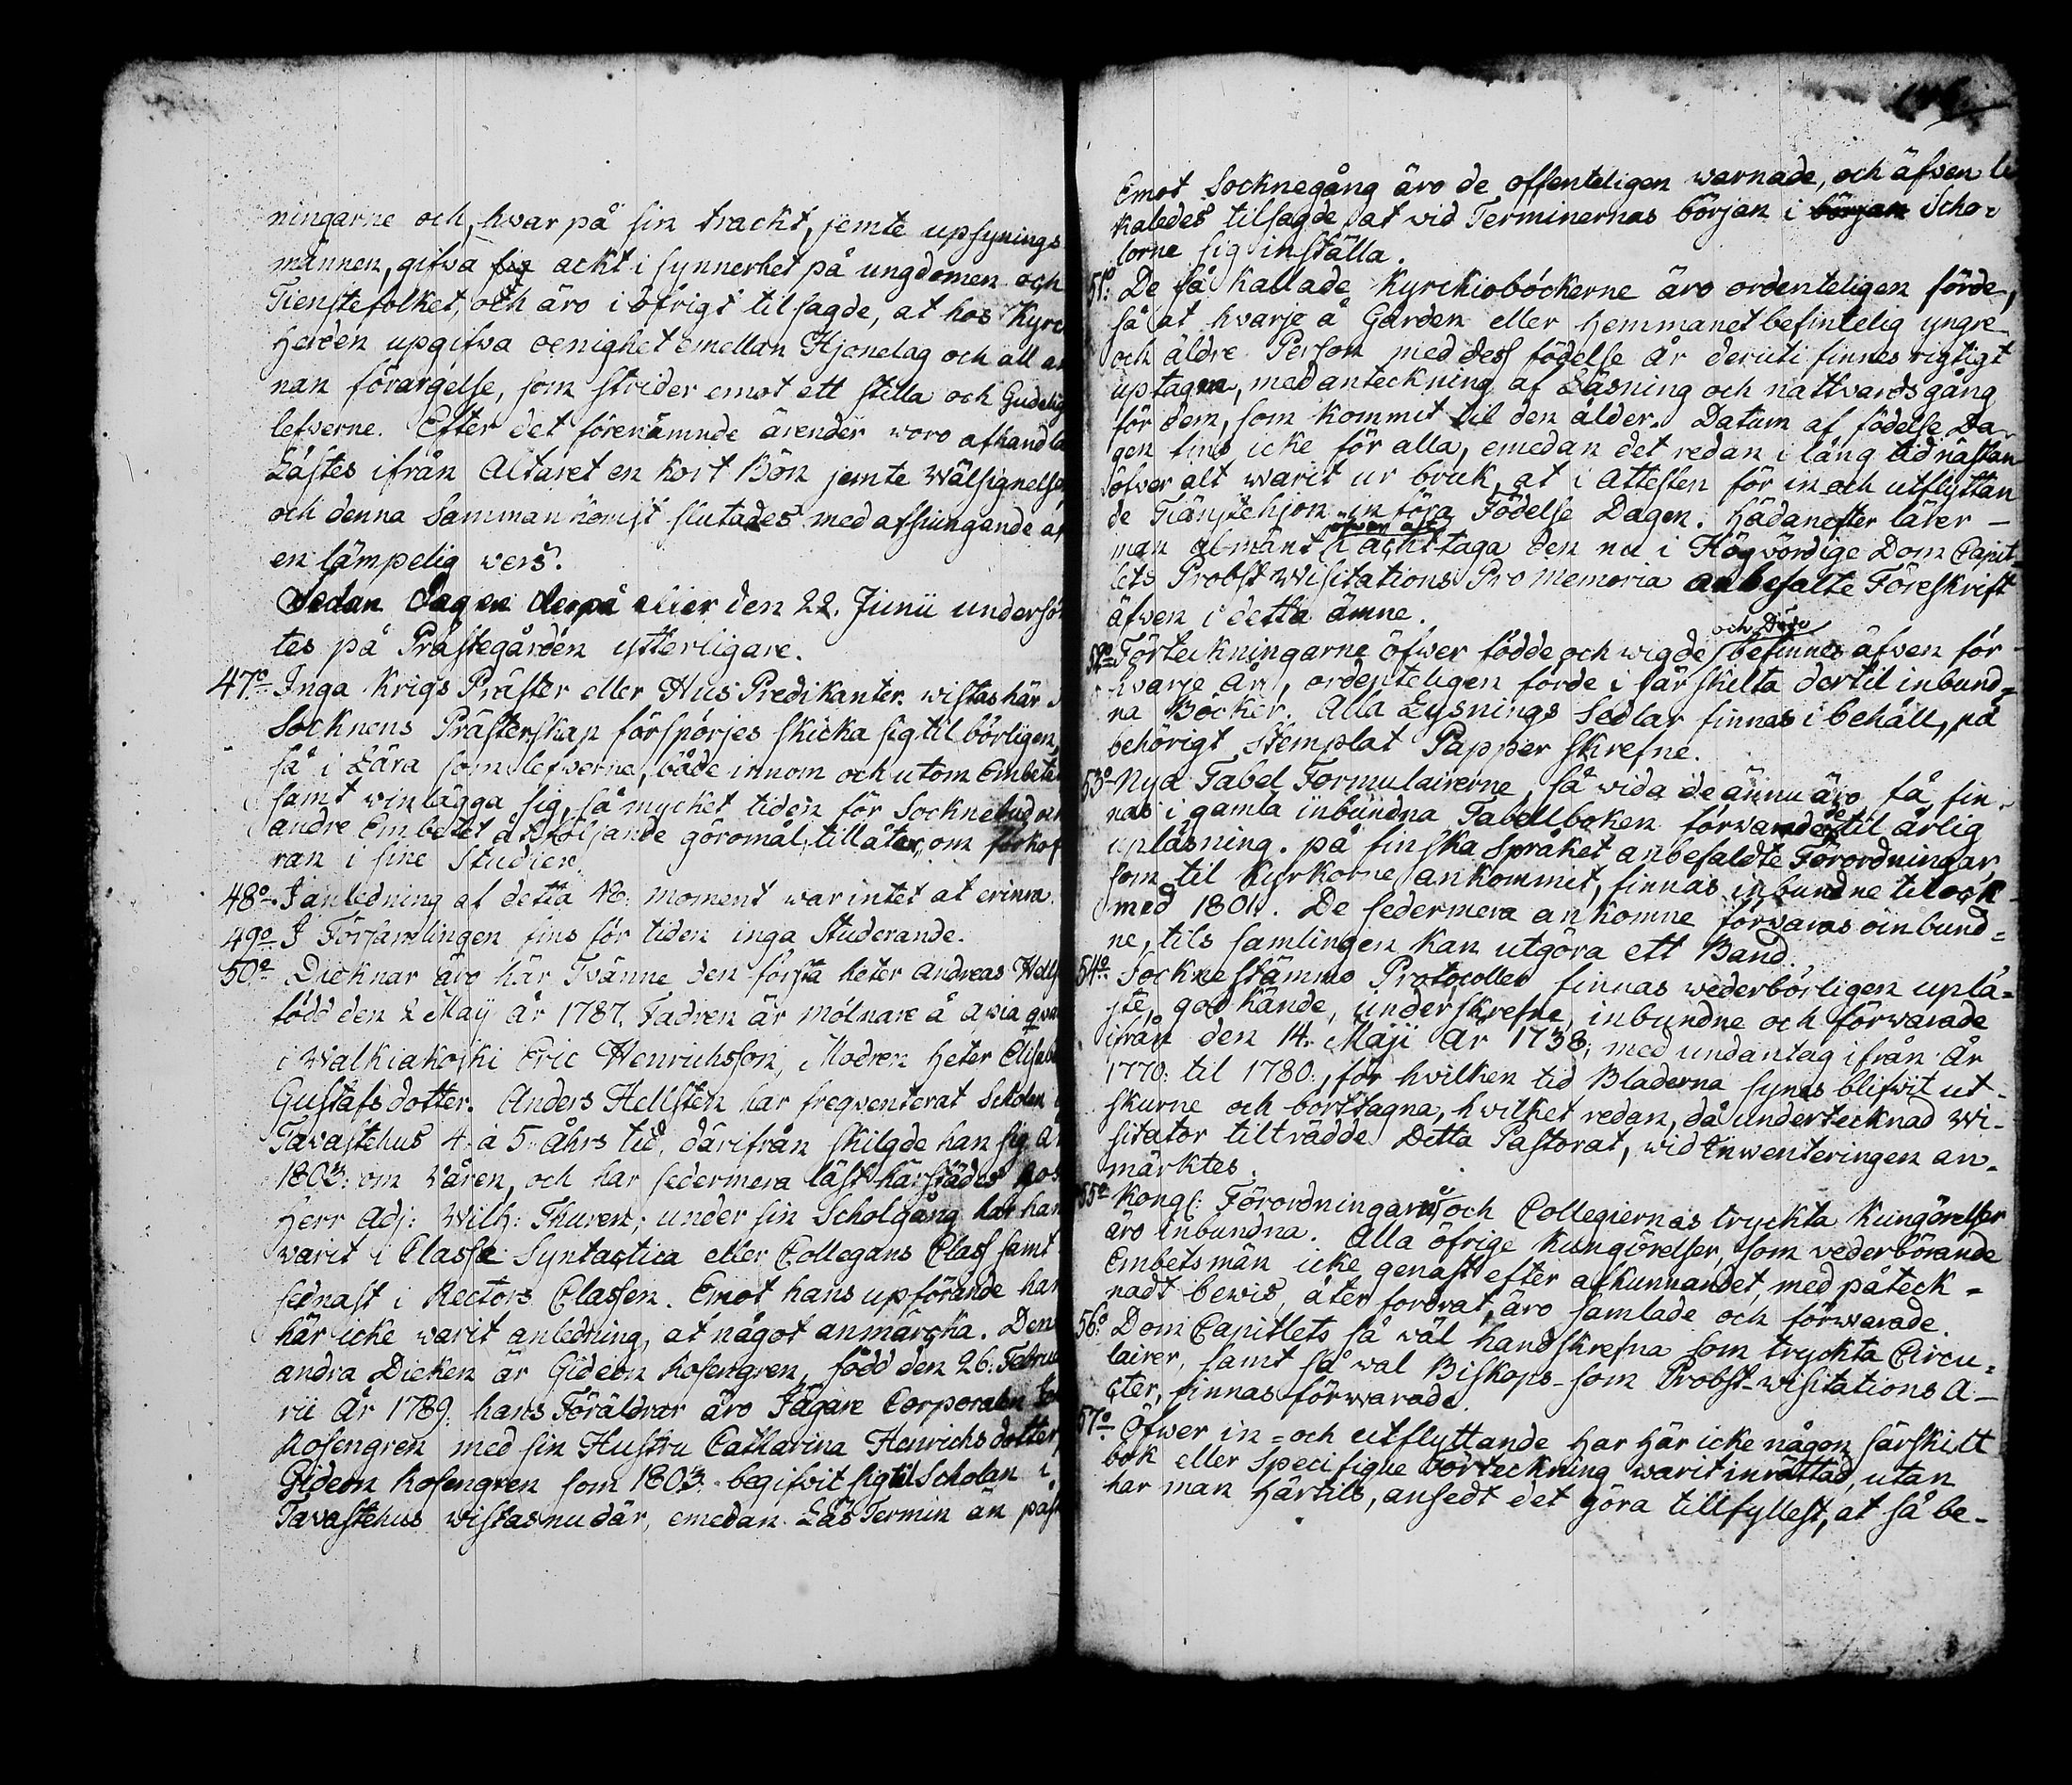 ningarne och, hvar på sin trackt, jemte upsynings
männen, gifwa sig ackt i synnerhet på ungdomen och
Tienstefolket, och äro i öfrigt tilsagde, at hos Kyrc
Herden upgifwa oenighet emellan Hjonelag och all an
nan förargelse, som strider emot ett stilla och Gudelig
lefwerne. Efter det förenämnde ärender woro afhandla
Lästes ifrån Altaret en kort Bön jemte Wälsignelsen,
och denna Sammankomst slutades med afsiungande af
en lämpelig vers.
Sedan dagen derpå eller den 22. Junii undersök
tes på Prästegården ytterligare.
47:o Inga Krigs Präster eller Hus Predikanter wistas här
Socknens Prästerskap förspörjes skicka sig til börligen,
så i Lära som lefwerne, både innom och utom Embetet
samt winlägga sig, så mycket tiden för Socknebud och
andre Embetet åtföljande göromål tillåter, om förkof
ran i sine Studier.
48:o I anledning af detta 48: moment war intet at erinra.
49:o I Församlingen fins för tiden inga Studerande.
50:o Dieknar äro här Tvänne den första heter Andreas Hells
född den 2 Maÿ år 1787. Fadren är mölnare å Apia qvar
i Walkiakoski Eric Henrichsson, Modren heter Elisabe
Gustafsdotter. Anders Hellsten har freqventerat Scholan i
Tavastehus 4. à 5. åhrs tid, därifrån skilgde han sig år
1803. om våren, och har sedermera läst härstädes hos
Herr Adj: Wilh: Thuren; under sin Scholgång har han
warit i Classe Syntactica eller Collegans Class samt
sednast i Rectors Classen. Emot hans upförande har
här icke warit anledning, at något anmärcka. Den
andra Dieken är Gideon Rosengren, född den 26. Februa
rii år 1789. hans Föräldrar äro Jägare Corporalen
Rosengren med sin Hustru Catharina Henrichsdotter,
Gideon Rosengren som 1803. begifvit sig til Scholan i
Tavastehus wistas nu där, emedan Läs Termin än påst
Emot Socknegång äro de offenteligen warnade, och äfwen le
kaledes tilsagde at vid Terminernas början i början Scho-
lorne sig inställa.
51:o De så kallade Kyrckioböckerne äro ordenteligen förde,
så at hvarje å Gården eller Hemmanet befintelig yngre
och äldre Person med dess födelse år deruti finnes rigtigt
uptagen, med anteckning af Läsning och nattvardsgång
för dem, som kommit til den ålder. Datum af födelse Da-
gen fins icke för alla, emedan det redan i lång tid nästan
öfwer alt warit ur bruk, at i Attesten för in och utflyttan
de Tiänstehjon införa Födelse Dagen. Hädanefter lärer -
man almänt i acht taga den nu i Högvördige Dom Capit-
lets Probst Wisitations Pro Memoria anbefalte Föreskrift
äfven i detta ämne.
och Döde
52:o Förteckningarne öfwer födde och wigde befinnes äfven för
hvarje år, ordenteligen förde i särskilta dertil inbund=
na Böcker. Alla Lysnings Sedlar finnas i behåll, på
behörigt Stemplat Papper skrefne.
53:o Nya Tabel Formulairerne, så vida de ännu äro få, fin-
nas i gamla inbundna Tabellboken förwarade til årlig
upläsning. på finska Språket anbefaldte Förordningar,
som til Kyrkorne ankommit, finnas inbundne til och
med 1801. De sedermera ankomne förwaras oinbund=
ne, tils samlingen kan utgöra ett Band.
54:o Sockne stämmo Protocoller finnas wederbörligen uplä=
ste, godkände, underskrefne, inbundne och förwarade
ifrån den 14. Maji År 1738; med undantag ifrån År
1770: til 1780:, för hvilken tid Bladerna synas blifwit ut-
skurne och borttagna, hvilket redan, då undertecknad Wi-
sitator tilträdde Detta Pastorat, wid Inwenteringen an-
märktes.
55:o Kongl: Förordningarne och Collegiernas tryckta Kungörelser
äro inbundna. Alla öfrige Kungörelser, som vederbörande
Embetsmän icke genast efter afkunnandet, med påteck=
nadt bewis, åter fordrat, äro samlade och förwarade.
56:o Dom Capitlets så wäl handskrefna som tryckta Circu=
lairer, samt så wal Biskops- som Probst-wisitations A-
cter, finnas förwarade.
57:o Öfwer in= och utflyttande Har Här icke någon särskilt
bok eller Specifique förteckning warit inrättad, utan
har man Härtils, ansedt det göra tillfyllest, at så be-